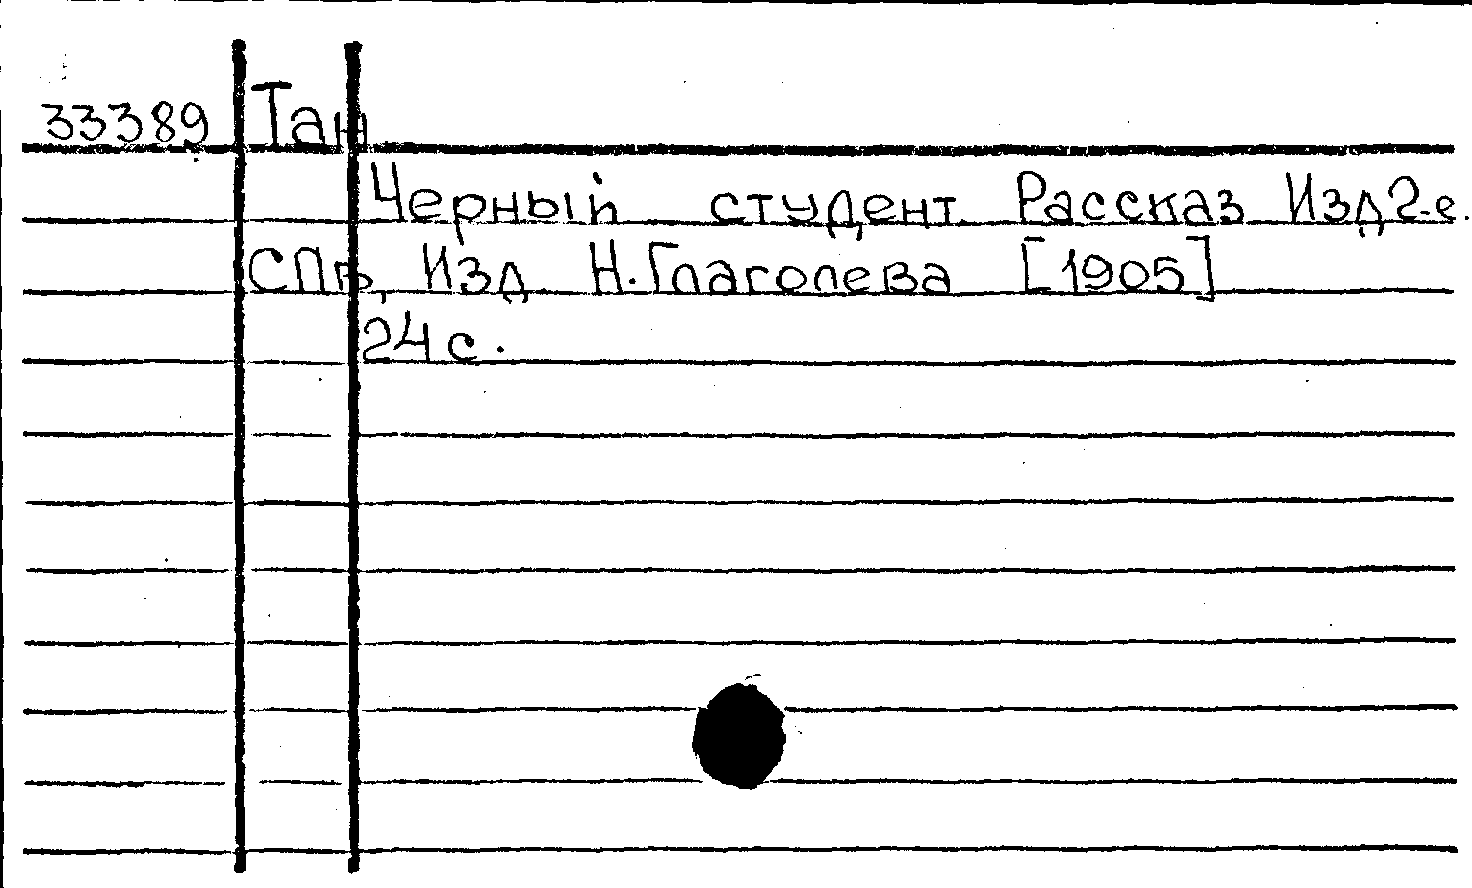 33389 Тан
Черный студент Рассказ Изд 2-е.
СПб, Изд Н. Глаголева [1905]
24 с.